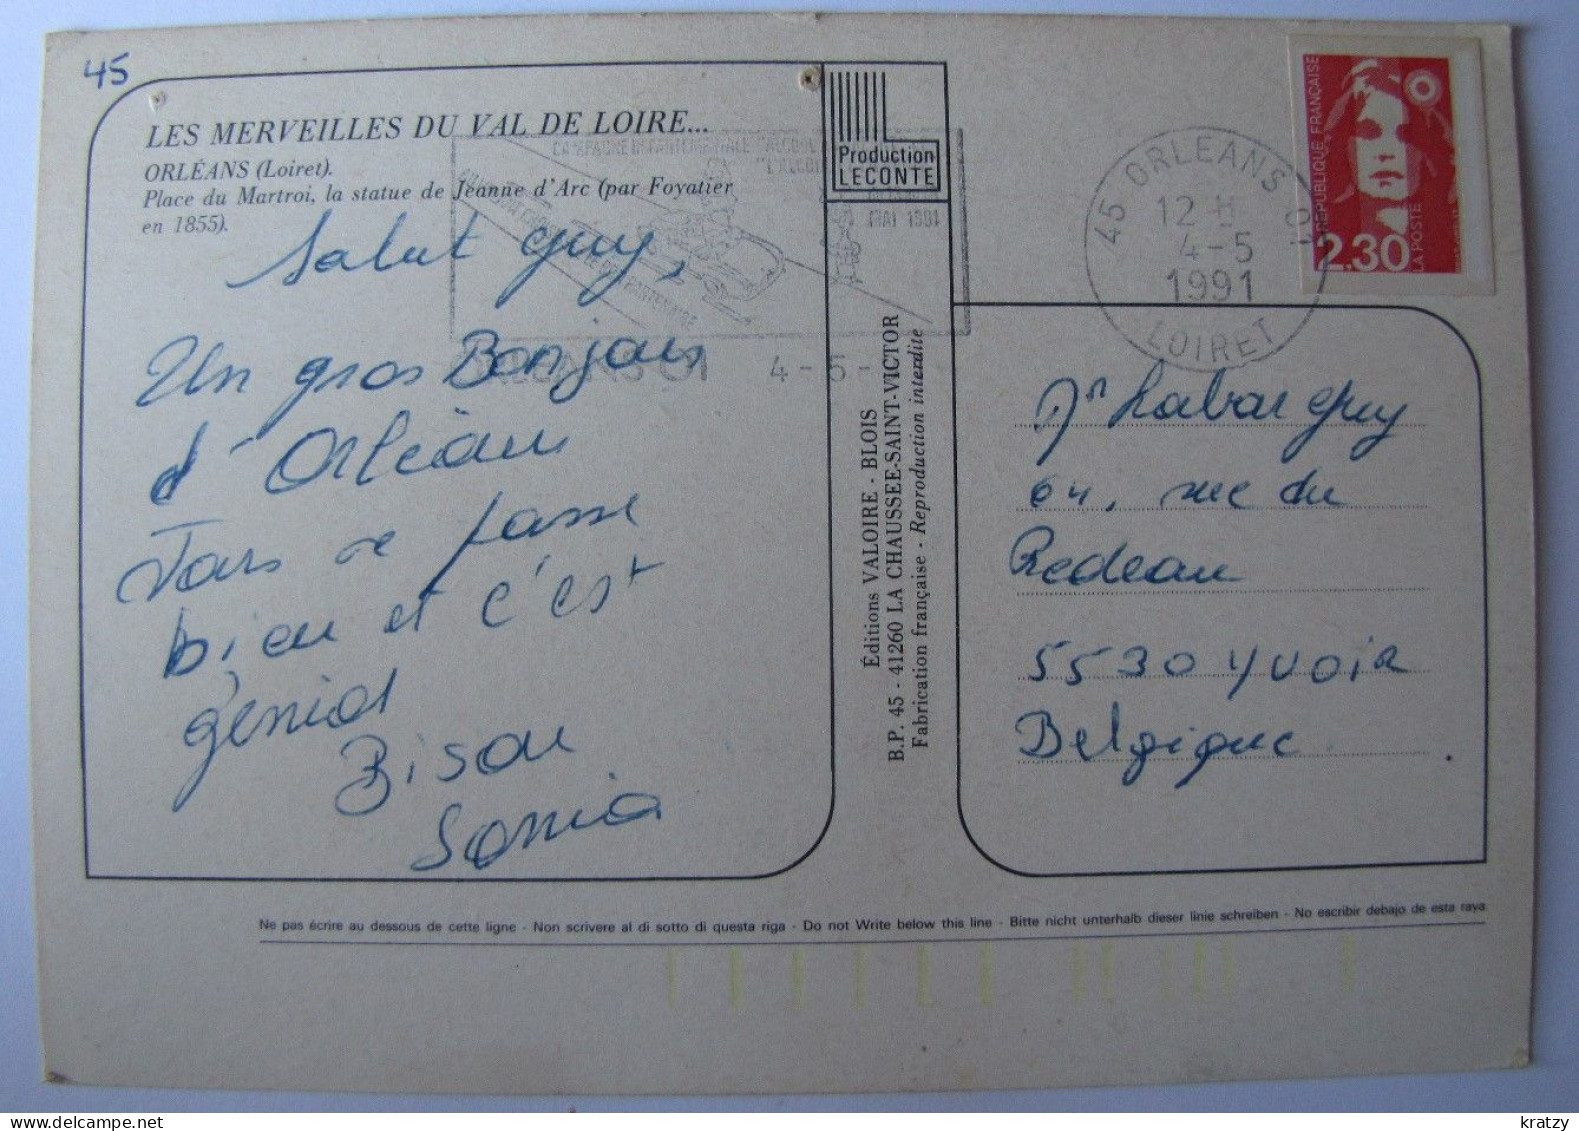 45
LES MERVEILLES DU VAL DE LOIRE...
ORLÉANS (Loiret).
Place du Martroi, la statue de Jeanne d'Arc (par Foyatier
en 1855).
Salut Guy,
Un gros Bonjour
d'Orléans
Tous se passe
bien et c'est
génial
Bisou
Sonia
Production
LECONTE
CAMPAGNE DEPARTEMENTALE "ALCOOL
MAI 1991
ORLEANS 01 4 - 5 -
Éditions VALOIRE - BLOIS
B.P. 45 - 41260 LA CHAUSSEE-SAINT-VICTOR
Fabrication française - Reproduction interdite
45 ORLEANS 01
12 H
4-5
1991
LOIRET
REPUBLIQUE FRANÇAISE
2.30
LA POSTE
Mr Labar Guy
64, rue du
Redeau
5530 YVOIR
Belgique
Ne pas écrire au dessous de cette ligne - Non scrivere al di sotto di questa riga - Do not Write below this line - Bitte nicht unterhalb dieser linie schreiben - No escribir debajo de esta raya
kratzy